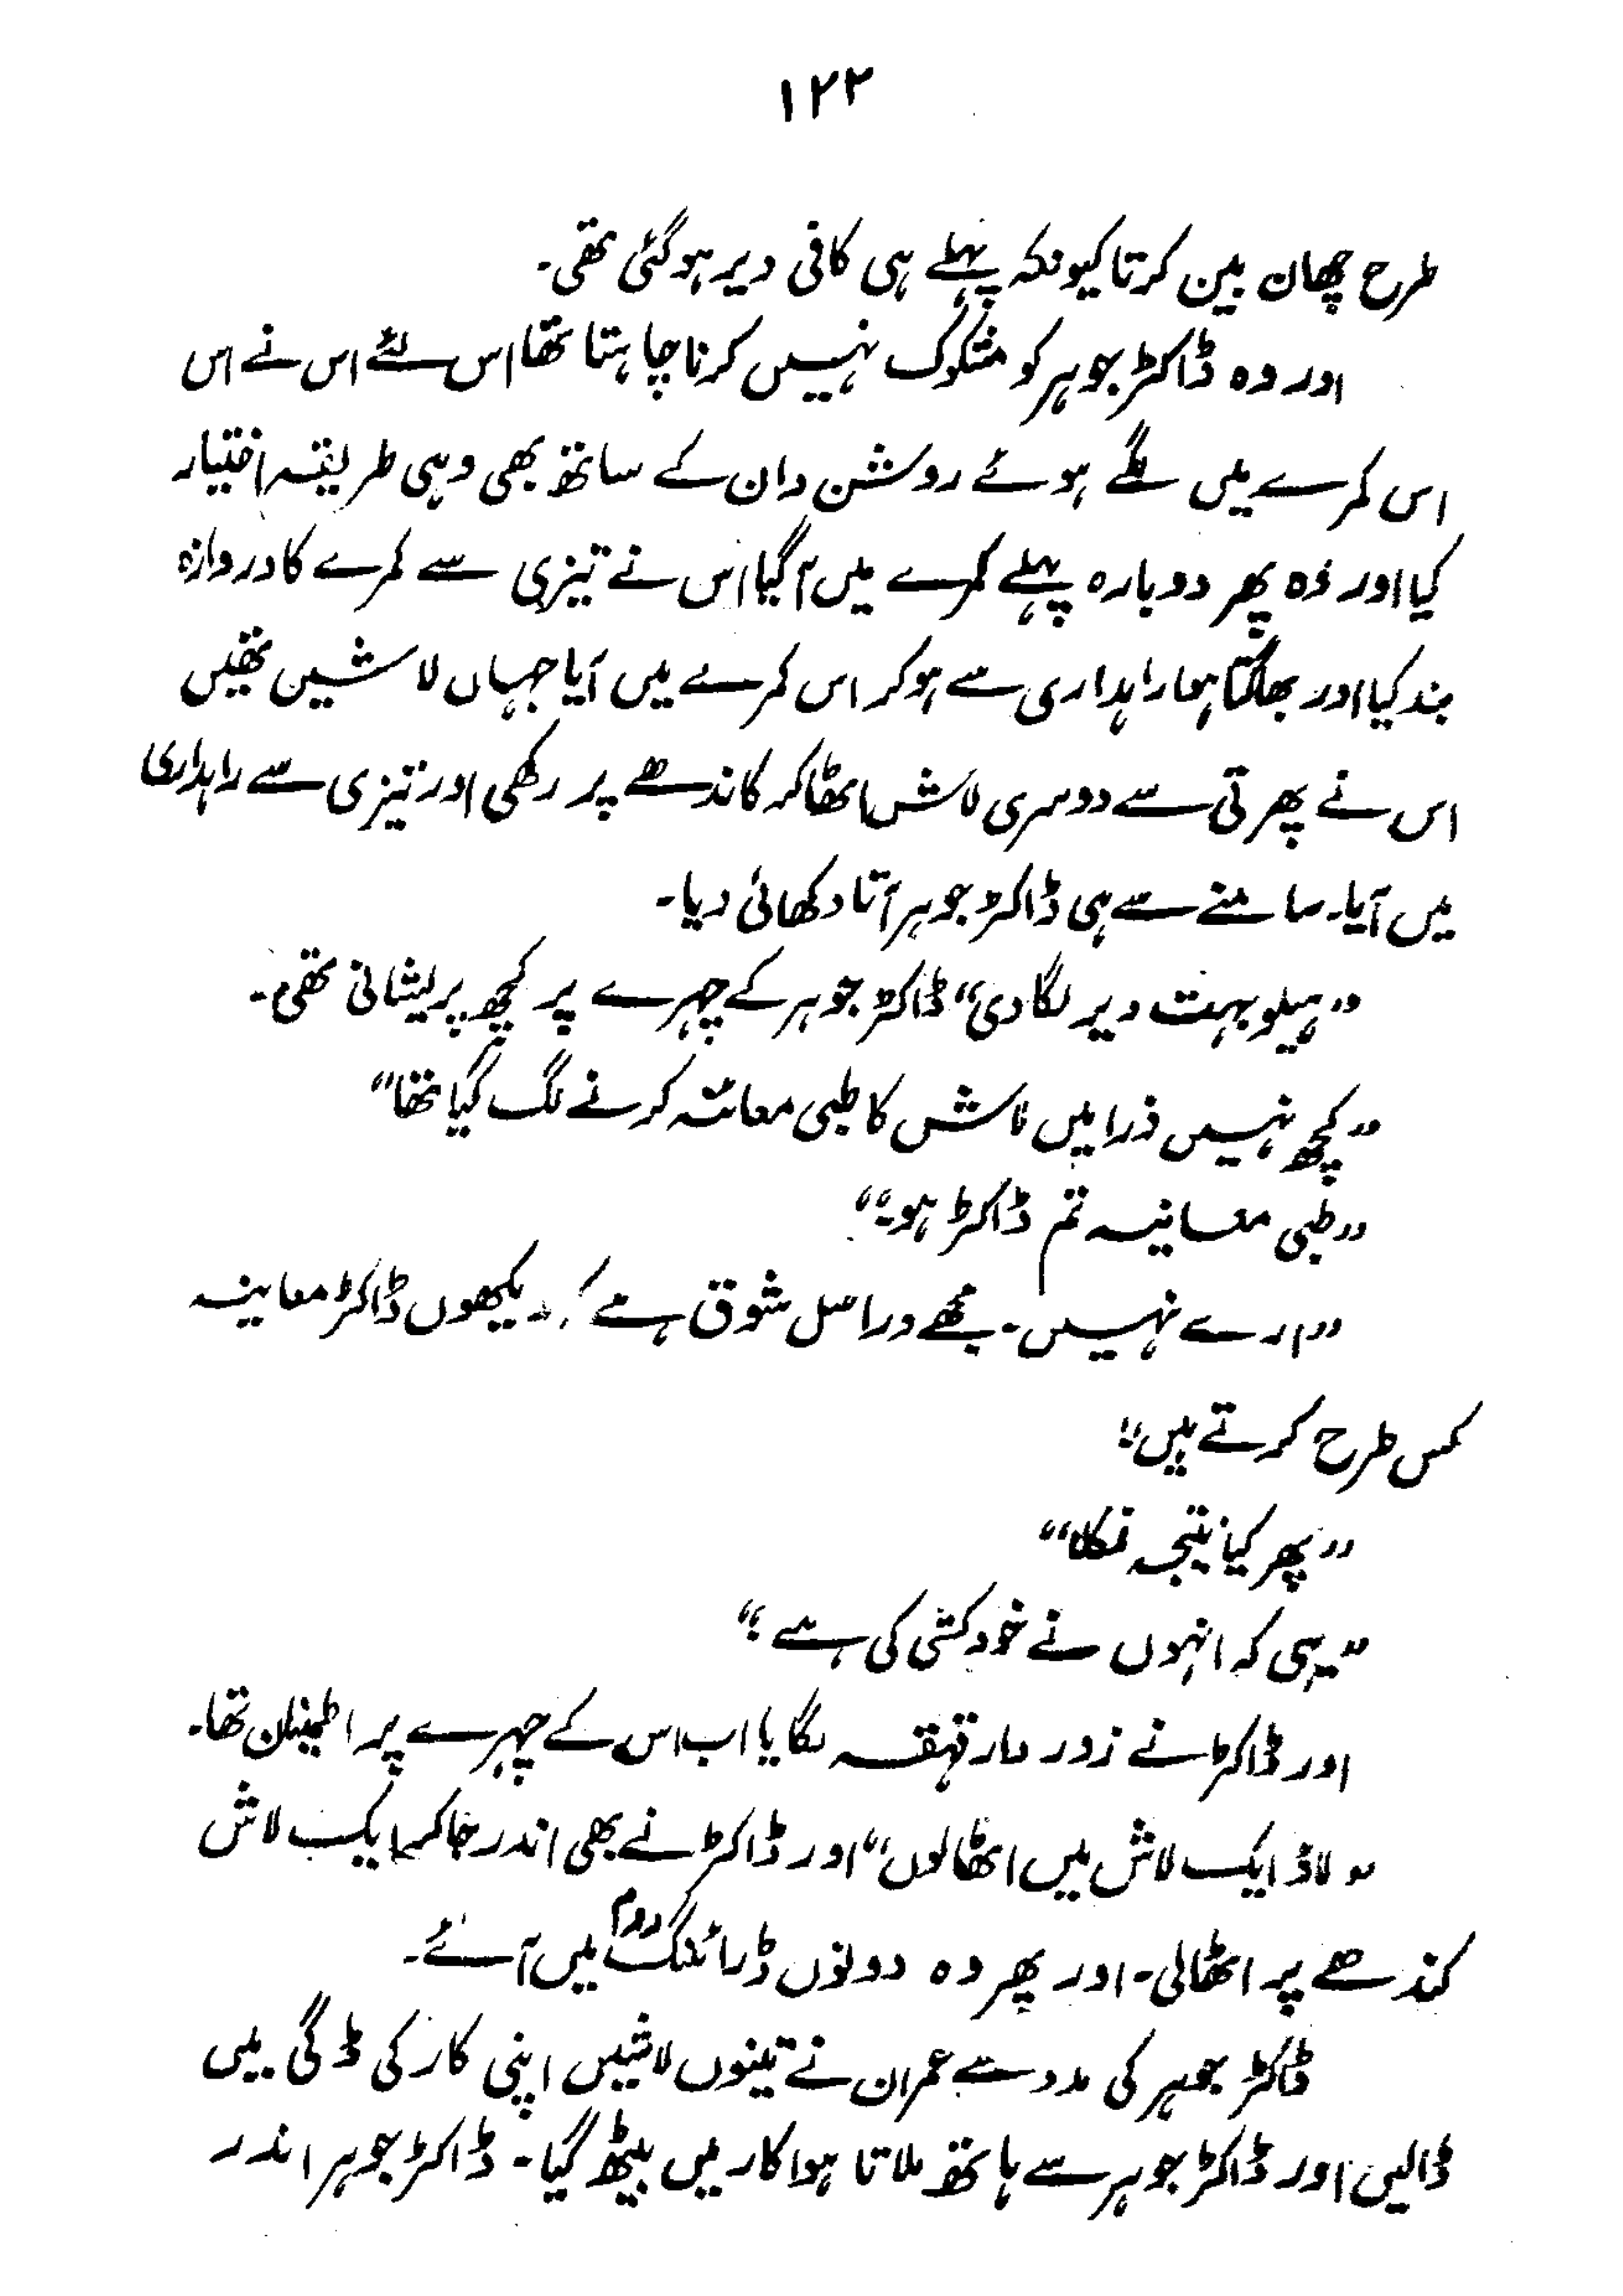 ۱۲۲
طرح چھان بین کرتا کیونکہ پہلے ہی کافی دیر ہو گئی تھی۔
اور وہ ڈاکٹر جوہر کو مشکوک نہیں کرنا چاہتا تھا اس لئے اس نے اس
اس کمرے میں لگے ہوئے روشن دان کے ساتھ بھی وہی طریقہ اختیار
کیا اور وہ پھر دوبارہ پہلے کمرے میں آ گیا اس نے تیزی سے کمرے کا دروازہ
بند کیا اور بھاگتا ہوا راہداری سے ہو کر اس کمرے میں آیا جہاں لاشیں تھیں
اس نے پھرتی سے دوسری لاش اٹھا کر کاندھے پر رکھی اور تیزی سے راہداری
میں آیا۔ سامنے سے ہی ڈاکٹر جوہر آتا دکھائی دیا۔
”ہیلو بہت دیر لگا دی“ ڈاکٹر جوہر کے چہرے پر کچھ پریشانی تھی۔
”کچھ نہیں ذرا میں لاش کا طبی معائنہ کرنے لگ گیا تھا“
”طبی معانیہ تم ڈاکٹر ہو؟“
”ارے نہیں۔ مجھے دراصل شوق ہے کہ دیکھوں ڈاکٹر معاینہ
کس طرح کرتے ہیں“
”پھر کیا نتیجہ نکلا“
”یہی کہ انہوں نے خودکشی کی ہے؛“
اور ڈاکٹر نے زور دار قہقہہ لگایا اب اس کے چہرے پر اطمینان تھا۔
”لاؤ ایک لاش میں اٹھا لوں“ اور ڈاکٹر نے بھی اندر جا کر ایک لاش
کندھے پر اٹھا لی۔ اور پھر وہ دونوں ڈرائنگ روم میں آئے۔
ڈاکٹر جوہر کی مدد سے عمران نے تینوں لاشیں اپنی کار کی ڈگی میں
ڈالیں اور ڈاکٹر جوہر سے ہاتھ ملاتا ہوا کار میں بیٹھ گیا۔ ڈاکٹر جوہر اندر